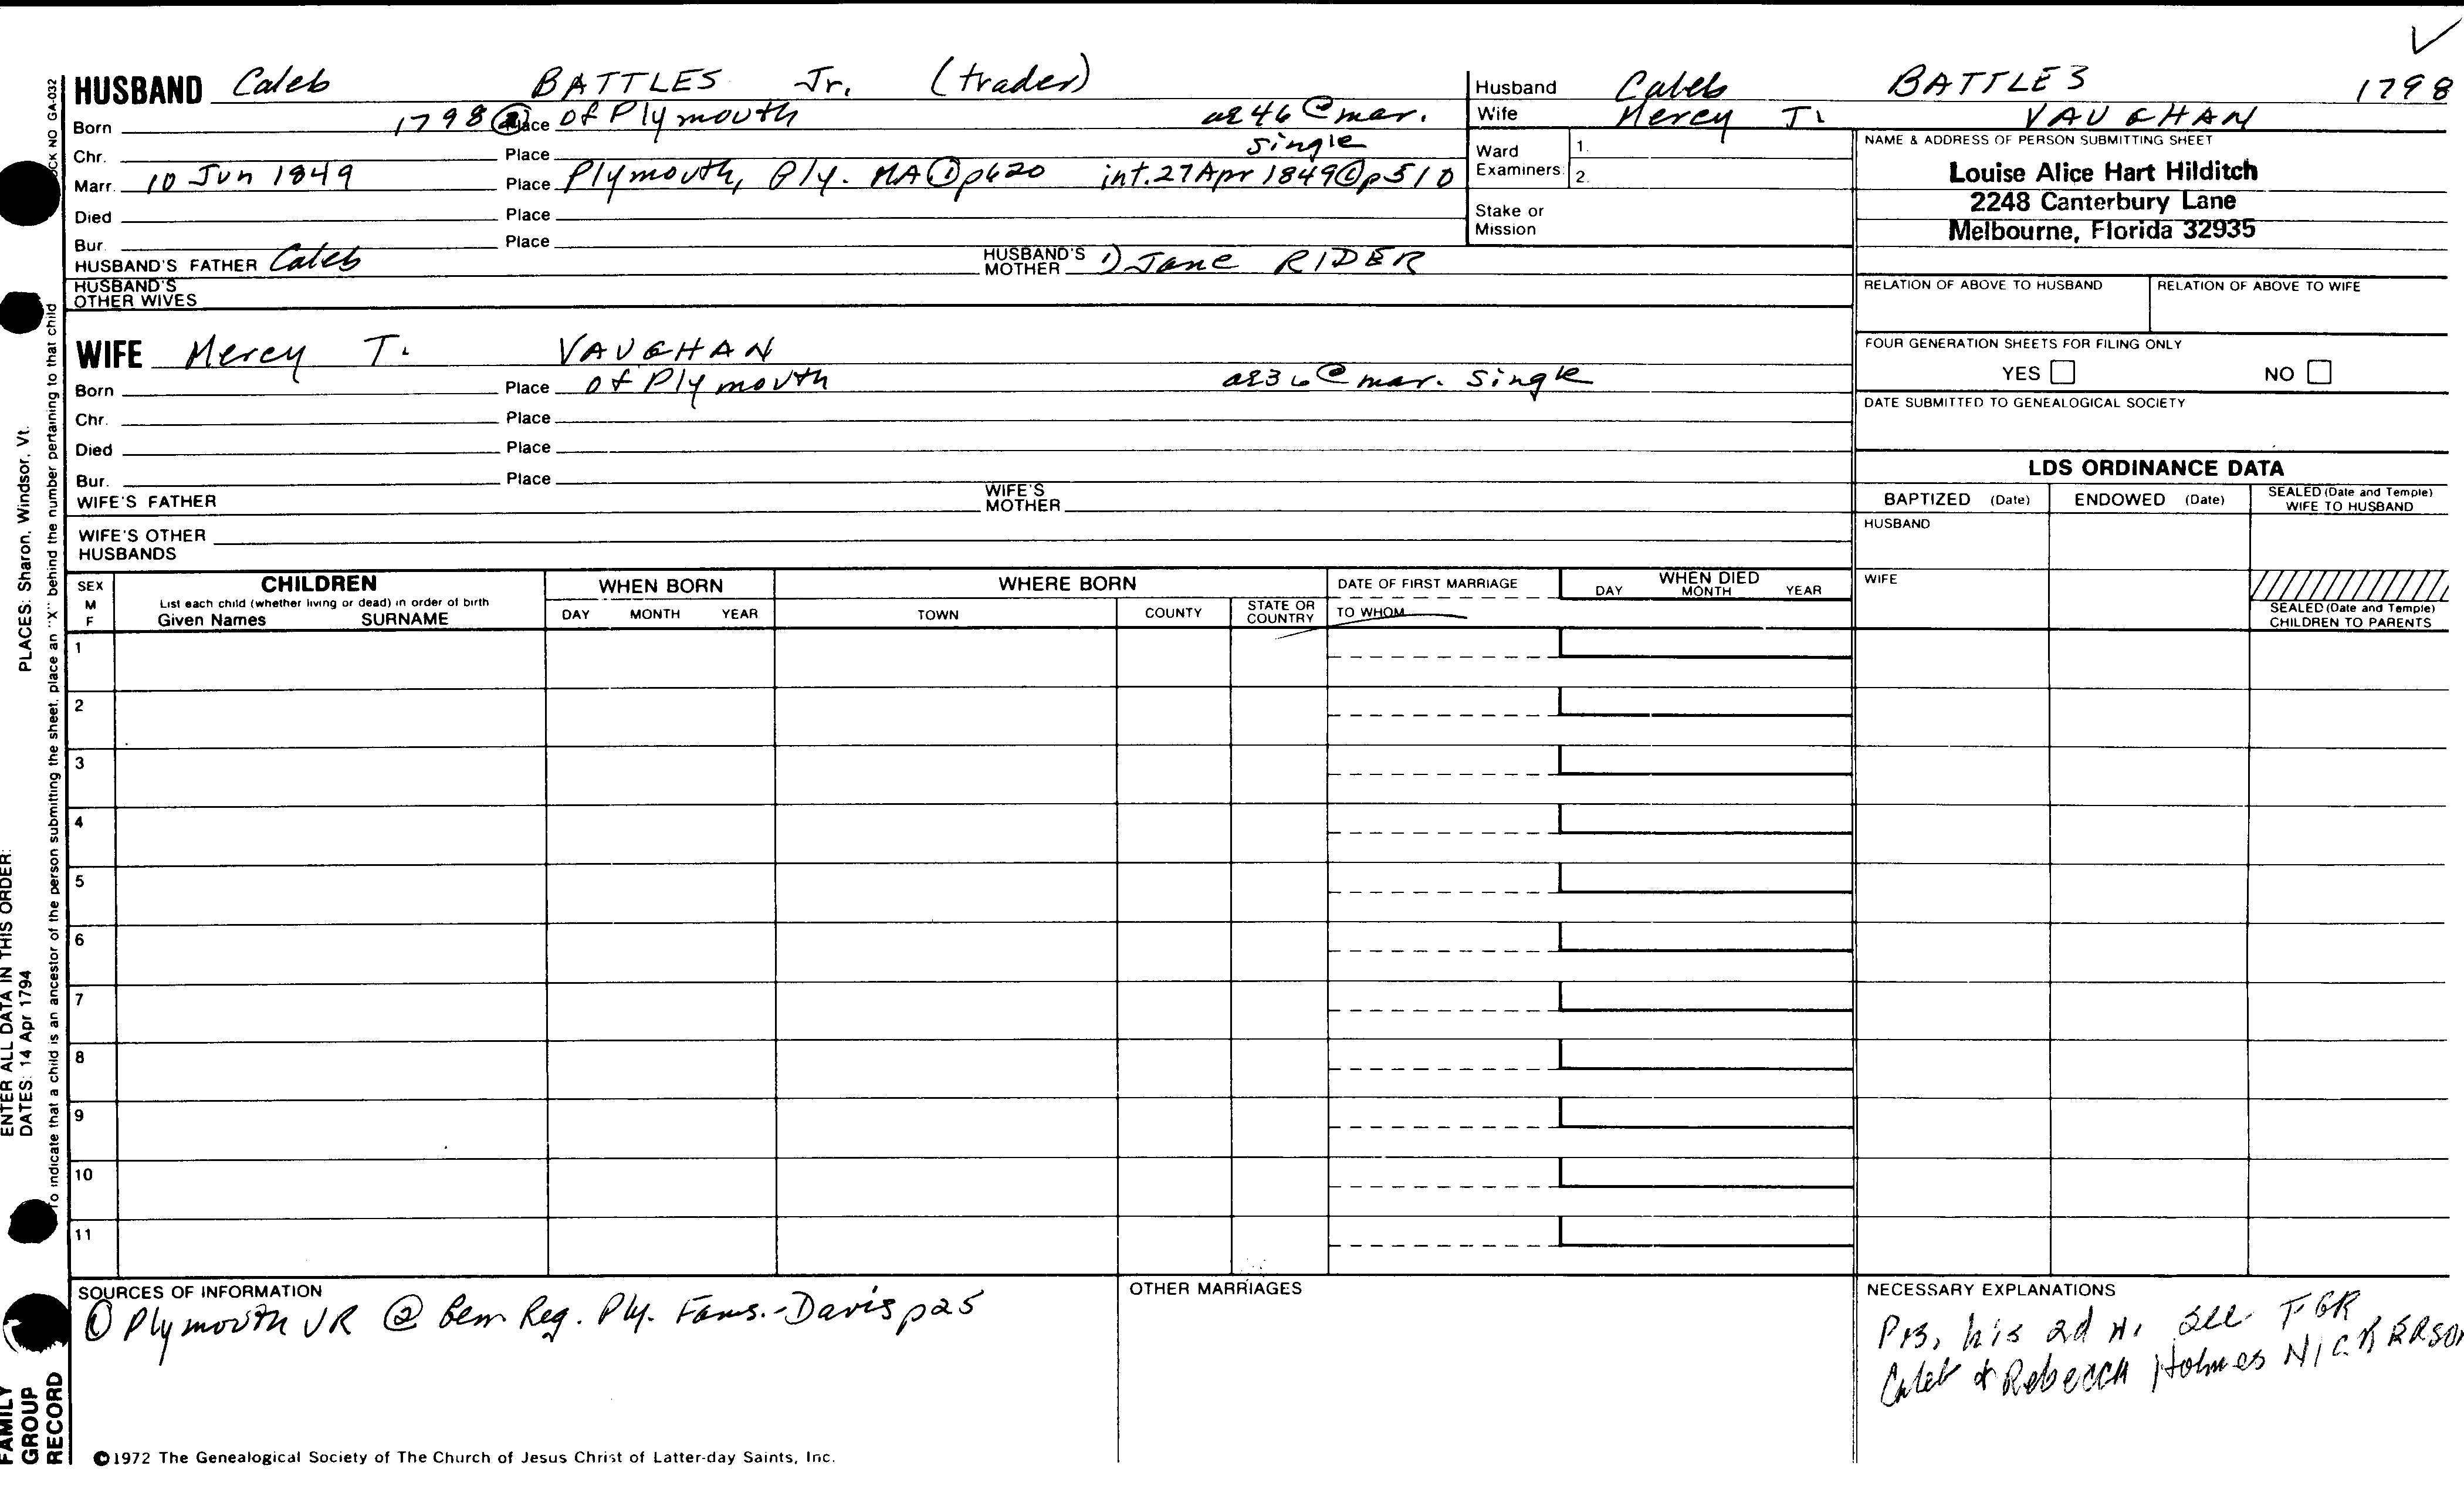 HUSBAND Caleb BATTLES Jr. (trader)
Born 1798 ② Place of Plymouth ae 46 @ mar.
Chr. Place single
Marr. 10 Jun 1849 Place Plymouth, Ply. MA ① p620 int. 27 Apr 1849 ① p510
Died Place
Bur. Place
HUSBAND'S FATHER Caleb HUSBAND'S MOTHER 1) Jane RIDER
HUSBAND'S OTHER WIVES
WIFE Mercy T. VAUGHAN
Born Place of Plymouth ae 36 @ mar. single
Chr. Place
Died Place
Bur. Place
WIFE'S FATHER WIFE'S MOTHER
WIFE'S OTHER HUSBANDS
Husband Caleb BATTLES 1798
Wife Mercy T. VAUGHAN
Ward Examiners: 1. 2.
Stake or Mission
NAME & ADDRESS OF PERSON SUBMITTING SHEET
Louise Alice Hart Hilditch
2248 Canterbury Lane
Melbourne, Florida 32935
RELATION OF ABOVE TO HUSBAND RELATION OF ABOVE TO WIFE
FOUR GENERATION SHEETS FOR FILING ONLY
YES NO
DATE SUBMITTED TO GENEALOGICAL SOCIETY
LDS ORDINANCE DATA
BAPTIZED (Date) ENDOWED (Date) SEALED (Date and Temple) WIFE TO HUSBAND
HUSBAND
WIFE
SEALED (Date and Temple) CHILDREN TO PARENTS
SEX M F
CHILDREN
List each child (whether living or dead) in order of birth
Given Names SURNAME
WHEN BORN
DAY MONTH YEAR
WHERE BORN
TOWN COUNTY STATE OR COUNTRY
DATE OF FIRST MARRIAGE
TO WHOM
WHEN DIED
DAY MONTH YEAR
1
2
3
4
5
6
7
8
9
10
11
SOURCES OF INFORMATION
① Plymouth VR ② Gen. Reg. Ply. Fams.-Davis p25
OTHER MARRIAGES
NECESSARY EXPLANATIONS
his 2d M. see FGR
Caleb & Rebecca Holmes NICKERSON
©1972 The Genealogical Society of The Church of Jesus Christ of Latter-day Saints, Inc.
CK NO GA-032
To indicate that a child is an ancestor of the person submitting the sheet, place an "X" behind the number pertaining to that child
PLACES: Sharon, Windsor, Vt.
ENTER ALL DATA IN THIS ORDER:
DATES: 14 Apr 1794
FAMILY
GROUP
RECORD